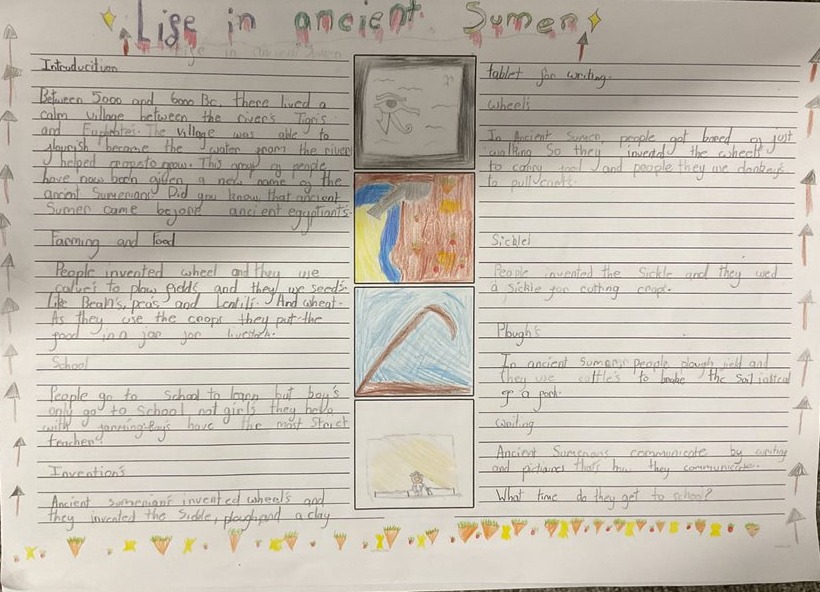 Life in ancient Sumer
Introducition
Between 5000 and 6000 Bc, there lived a
calm village between the river's Tigris
and Euphrates. The village was able to
flourish became the water from the river
helped to grow. This group of people
have now been given a new name of the
ancient Sumerians Did you know that ancient
Sumer came before ancient egyptian's
Farming and Food
People invented wheel and they use
to plow fields and they use seeds
like Bean's, pea's and Lentils. And wheat.
As they use the crops they put the
food in a jar for
School
People go to School to learn but boy's
only go to School not girl's they help
with farming. Boy's have the most Strict
teacher!
Invention's
Ancient sumerian's invented wheels and
they invented the Sickle, plough and a clay
tablet for writing.
wheel's
In Ancient Sumer, people got bored of just
walking So they invented the wheel
to carry and people they use donkey's
to pull
Sickle!
People invented the Sickle and they used
a Sickle for cutting crops.
Plough's
In ancient Sumer, people plough field and
they use cattle's to the Soil
of a
writing
Ancient Sumerians communicate by writing
and pictures that's how they communicate.
What time do they get to school?